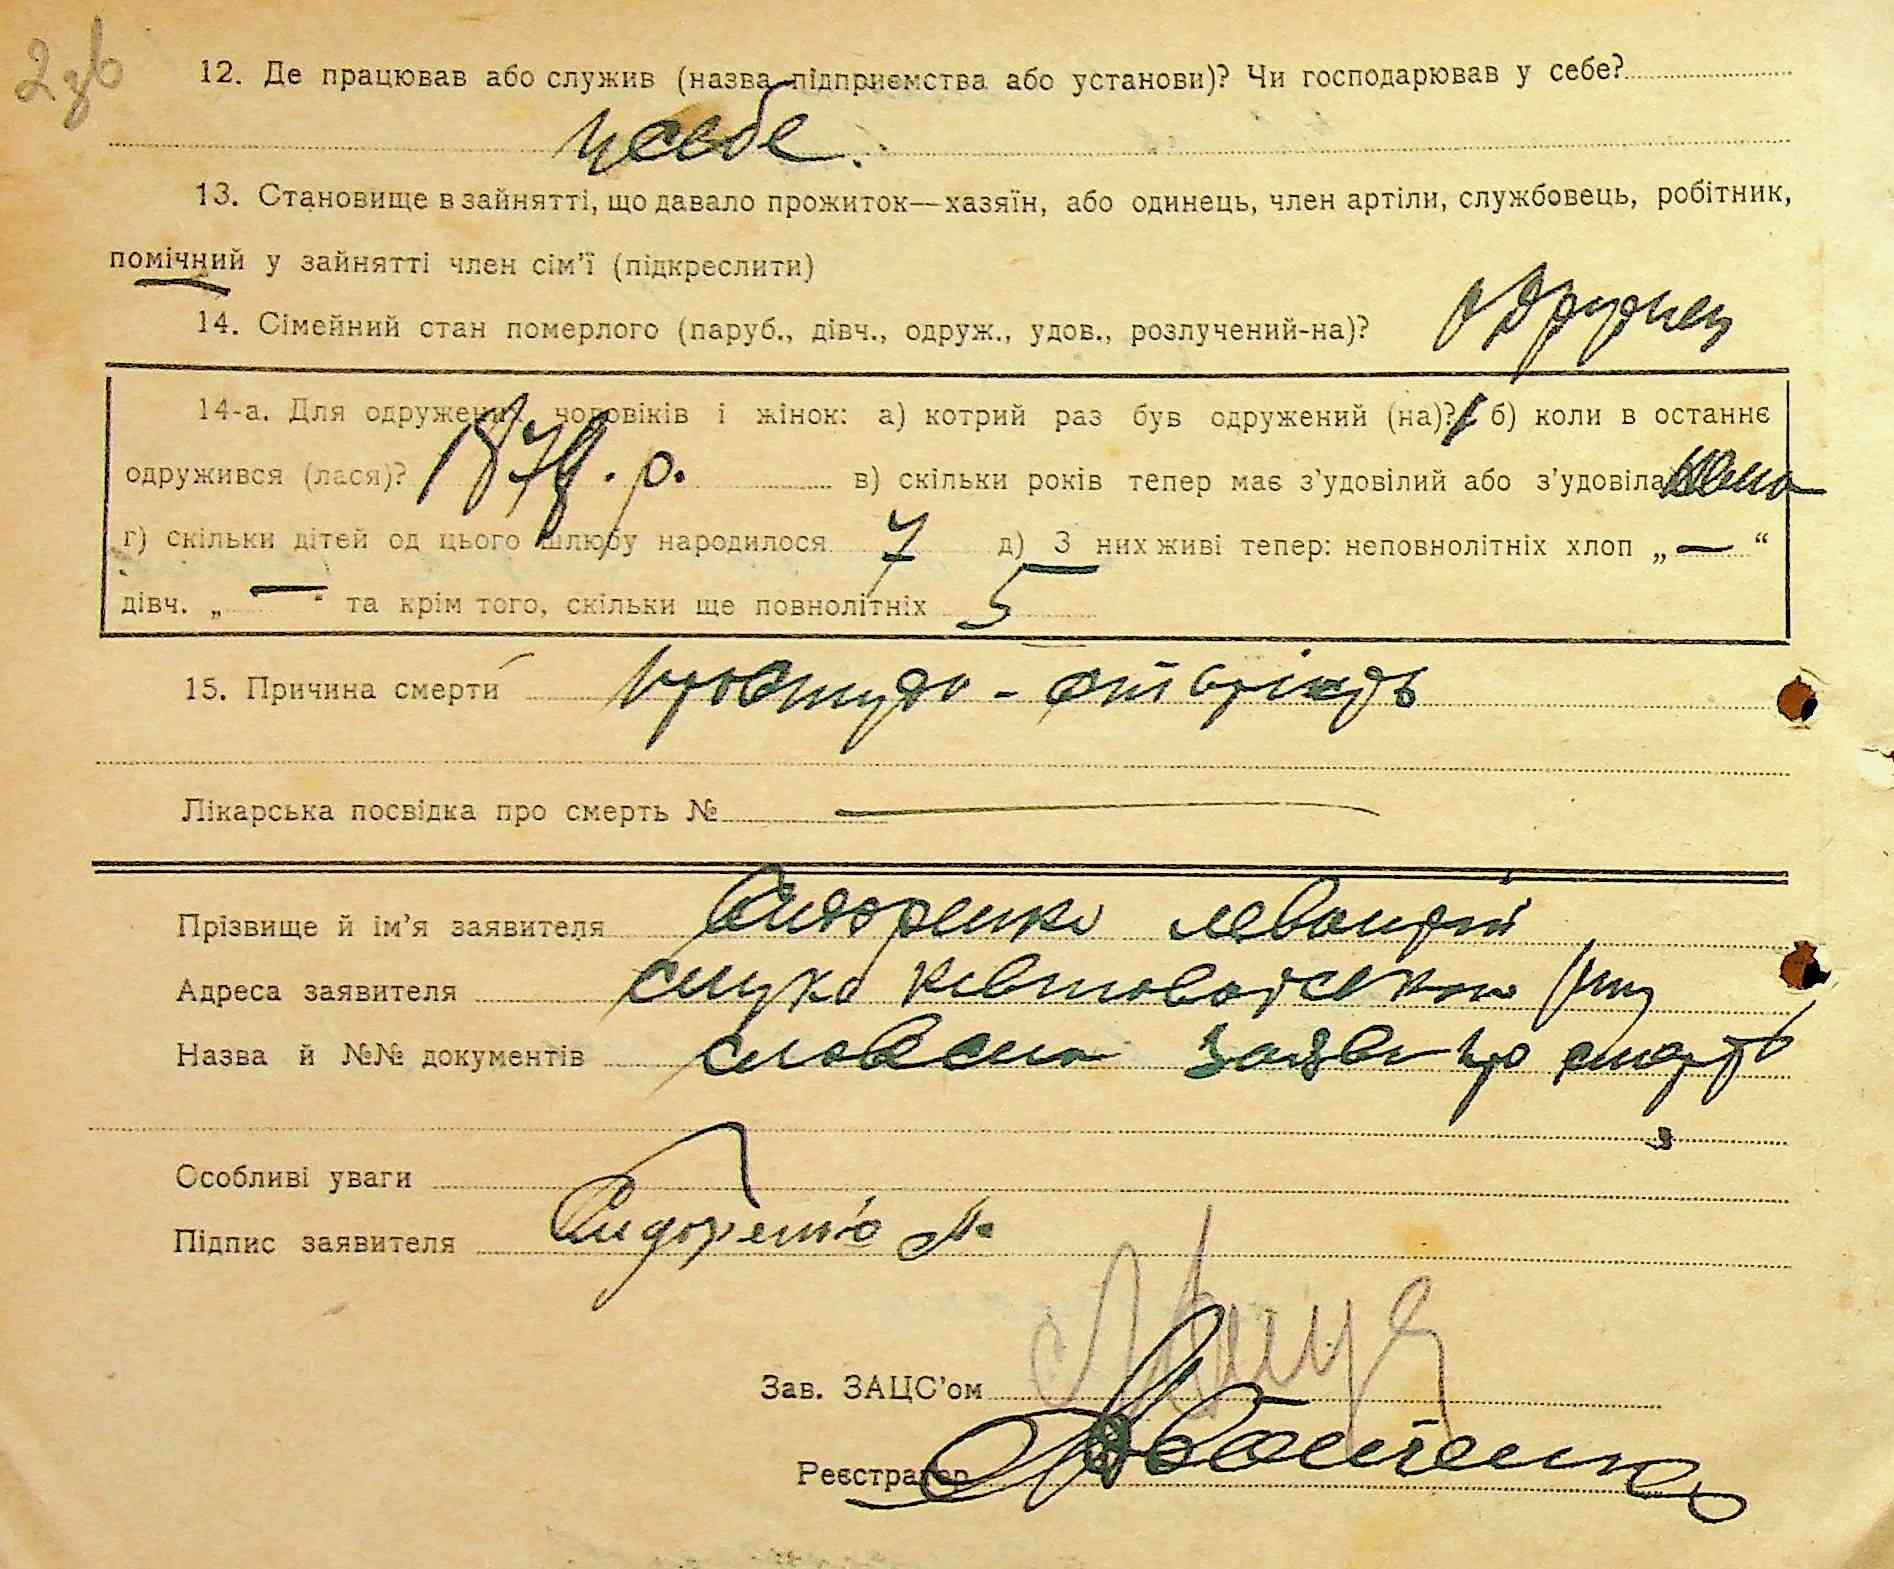 2 зв
12. Де працював або служив (назва підприємства або установи)? Чи господарював у себе?
у себе.
13. Становище в зайнятті, що давало прожиток—хазяїн, або одинець, член артіли, службовець, робітник,
помічний у зайнятті член сім'ї (підкреслити)
14. Сімейний стан померлого (паруб., дівч., одруж., удов., розлучений-на)?
14-а. Для одружених чоловіків і жінок: а) котрий раз був одружений (на)? 1 б) коли в останнє
одружився (лася)? р. в) скільки років тепер має з'удовілий або з'удовіла
г) скільки дітей од цього шлюбу народилося 7 д) З них живі тепер: неповнолітніх хлоп „ — “
дівч. „ — “ та крім того, скільки ще повнолітніх 5
15. Причина смерти простуда -
Лікарська посвідка про смерть № —
Прізвище й ім'я заявителя Сидоренко
Адреса заявителя
Назва й №№ документів словесна заява про смерть
Особливі уваги
Підпис заявителя Сидоренко
Зав. ЗАЦС'ом
Реєстратор